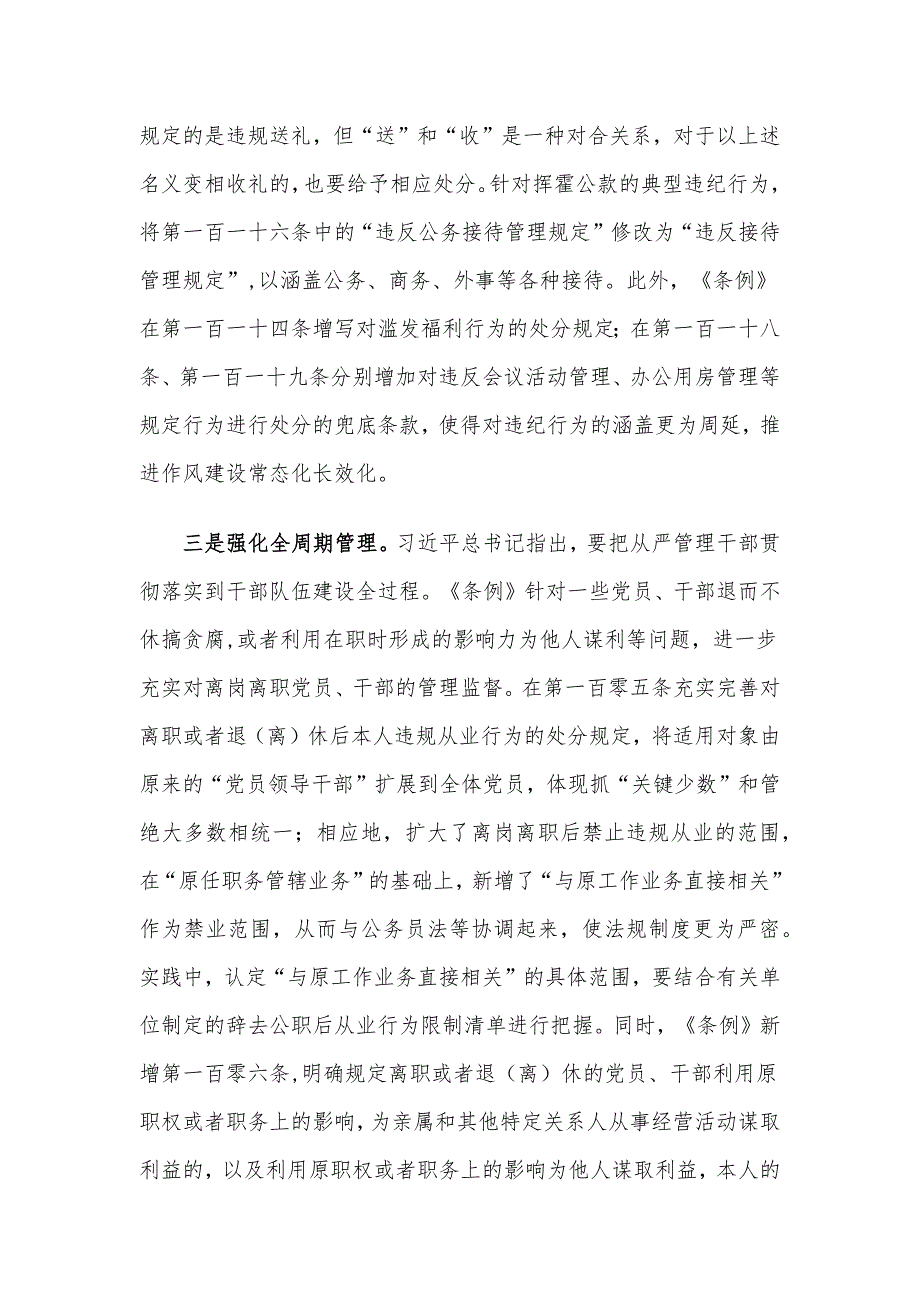 规定的是违规送礼，但“送”和“收”是一种对合关系，对于以上述
名义变相收礼的,也要给予相应处分。针对挥霍公款的典型违纪行为，
将第一百一十六条中的“违反公务接待管理规定”修改为“违反接待
管理规定”,以涵盖公务、商务、外事等各种接待。此外，《条例》
在第一百一十四条增写对滥发福利行为的处分规定；在第一百一十八
条、第一百一十九条分别增加对违反会议活动管理、办公用房管理等
规定行为进行处分的兜底条款，使得对违纪行为的涵盖更为周延，推
进作风建设常态化长效化。
三是强化全周期管理。习近平总书记指出，要把从严管理干部贯
彻落实到干部队伍建设全过程。《条例》针对一些党员、干部退而不
休搞贪腐,或者利用在职时形成的影响力为他人谋利等问题，进一步
充实对离岗离职党员、干部的管理监督。在第一百零五条充实完善对
离职或者退（离）休后本人违规从业行为的处分规定，将适用对象由
原来的“党员领导干部”扩展到全体党员，体现抓“关键少数”和管
绝大多数相统一；相应地，扩大了离岗离职后禁止违规从业的范围，
在“原任职务管辖业务”的基础上，新增了“与原工作业务直接相关”
作为禁业范围，从而与公务员法等协调起来，使法规制度更为严密。
实践中，认定“与原工作业务直接相关”的具体范围，要结合有关单
位制定的辞去公职后从业行为限制清单进行把握。同时，《条例》新
增第一百零六条,明确规定离职或者退（离）休的党员、干部利用原
职权或者职务上的影响，为亲属和其他特定关系人从事经营活动谋取
利益的，以及利用原职权或者职务上的影响为他人谋取利益，本人的